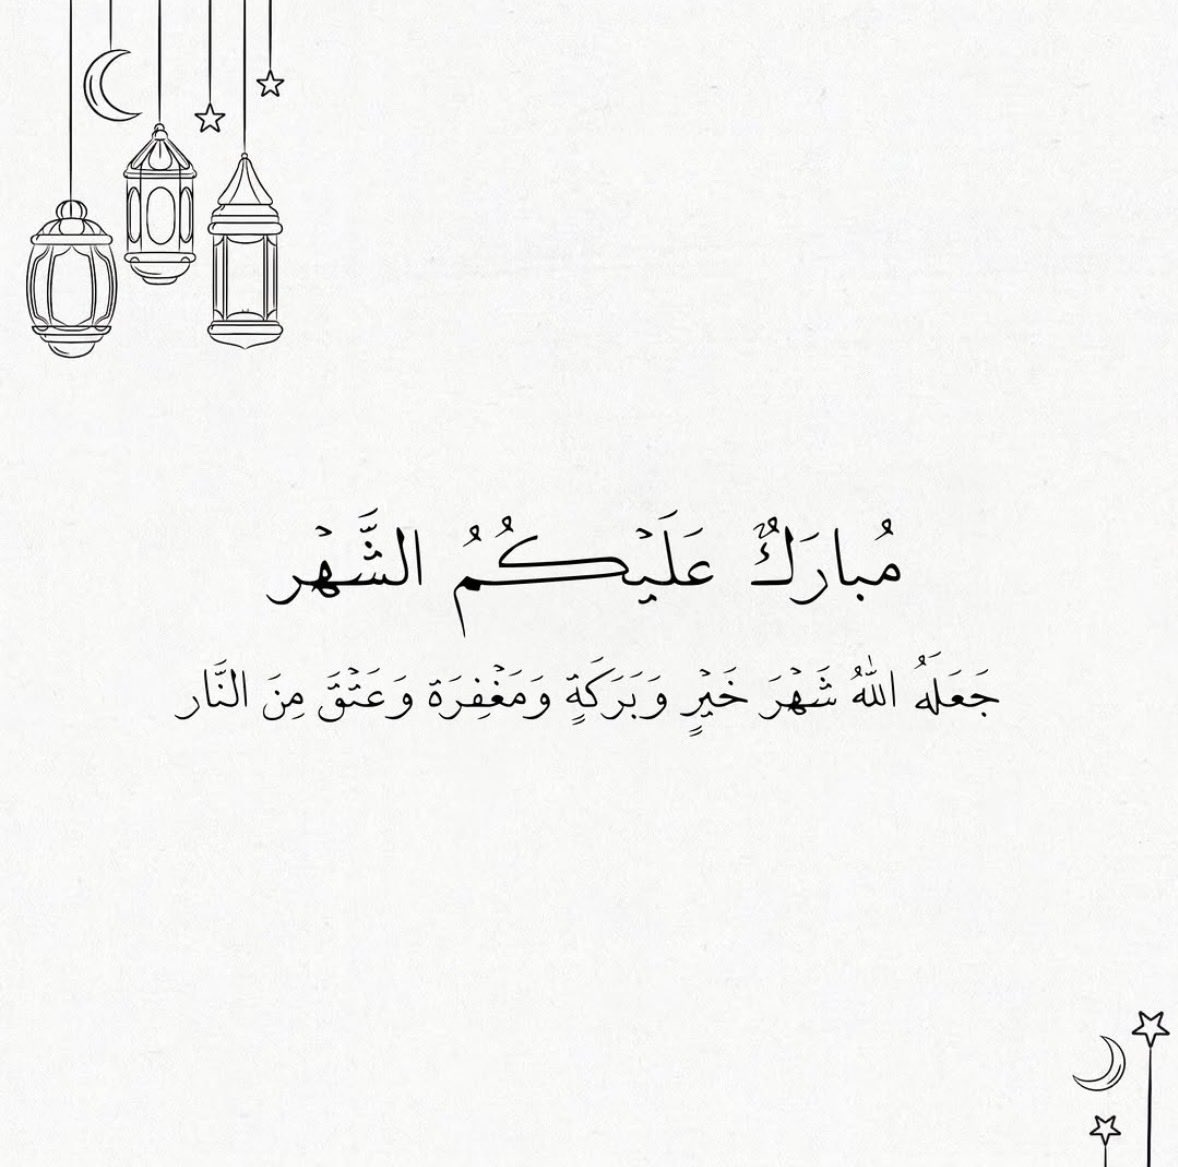 مُبارَكٌ عَلَيْكُمُ الشَّهْر
جَعَلَهُ اللهُ شَهْرَ خَيْرٍ وَبَرَكَةٍ وَمَغْفِرَة وَعَتْقَ مِنَ النَّار